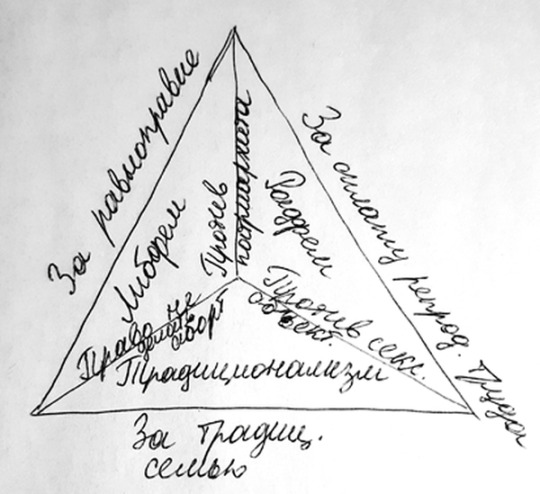 За равноправие
За оплату репрод. труда
Либфем
Против
патриархата
Радфем
Право не
делать
аборт
Против секс.
объект.
Традиционализм
За традиц.
семью